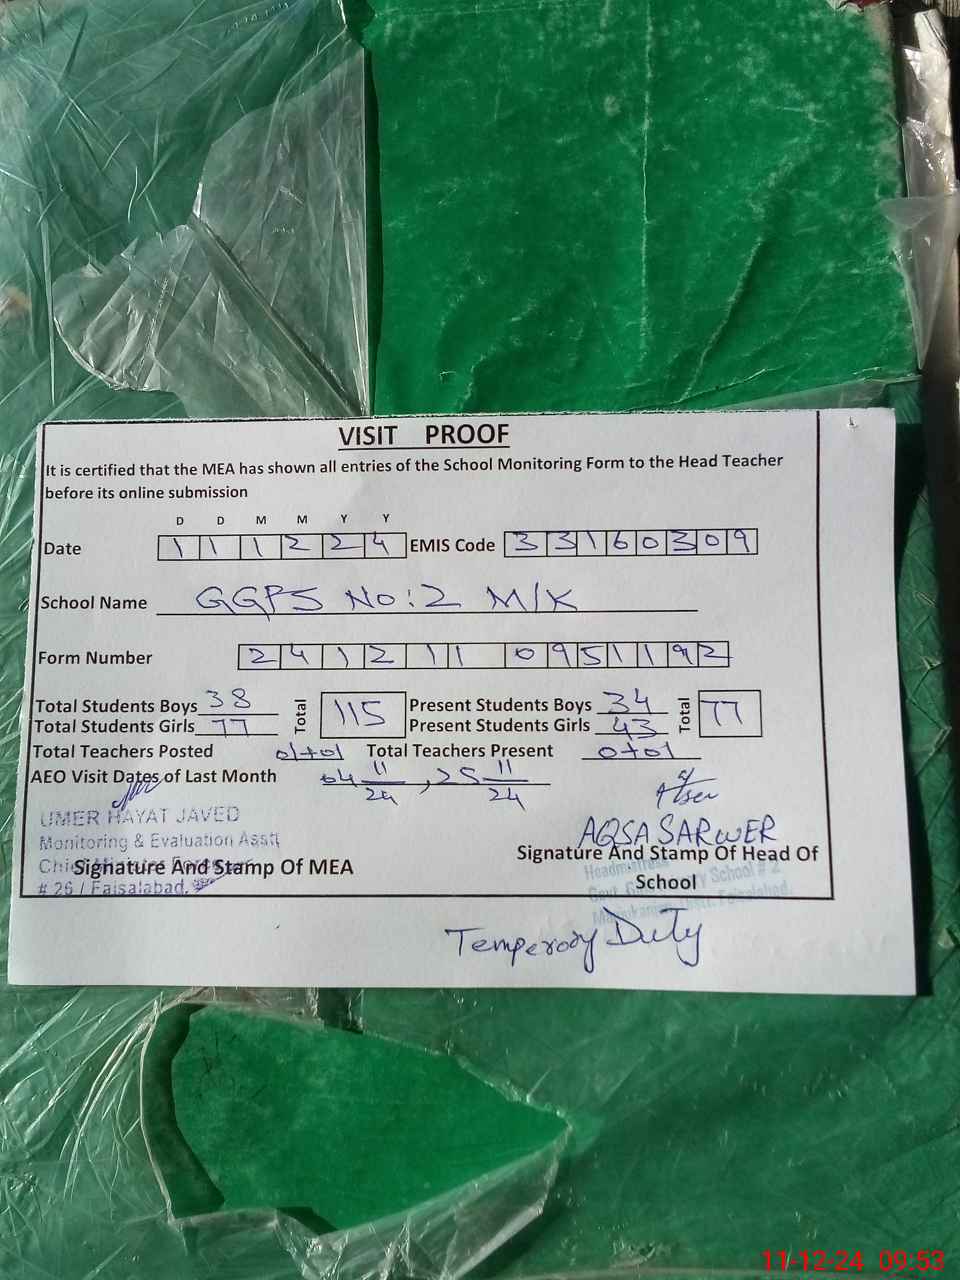 VISIT PROOF
It is certified that the MEA has shown all entries of the School Monitoring Form to the Head Teacher
before its online submission
D D M M Y Y
Date 1 1 1 2 2 4 EMIS Code 3 3 1 6 0 3 0 9
School Name GGPS No:2 M/K
Form Number 2 4 1 2 1 1 0 9 5 1 1 9 2
Total Students Boys 38 Total 115 Present Students Boys 34 Total 77
Total Students Girls 77 Present Students Girls 43
Total Teachers Posted 01+01 Total Teachers Present 0+01
AEO Visit Dates of Last Month 04 11/24, 25 11/24
UMER HAYAT JAVED
AQSA SARWER
Monitoring & Evaluation Asstt
Signature And Stamp Of Head Of
School
Chief Minister
Signature And Stamp Of MEA
Headmistress
School # 2
# 26 / Faisalabad.
Faisalabad.
Temperory Duty
11-12-24 09:53